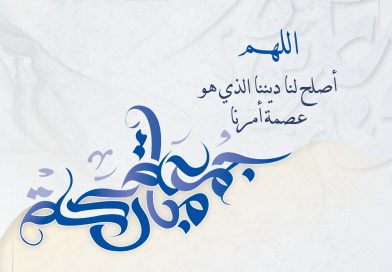 اللهم
أصلح لنا ديننا الذي هو
عصمة أمرنا
جمعة
مباركة